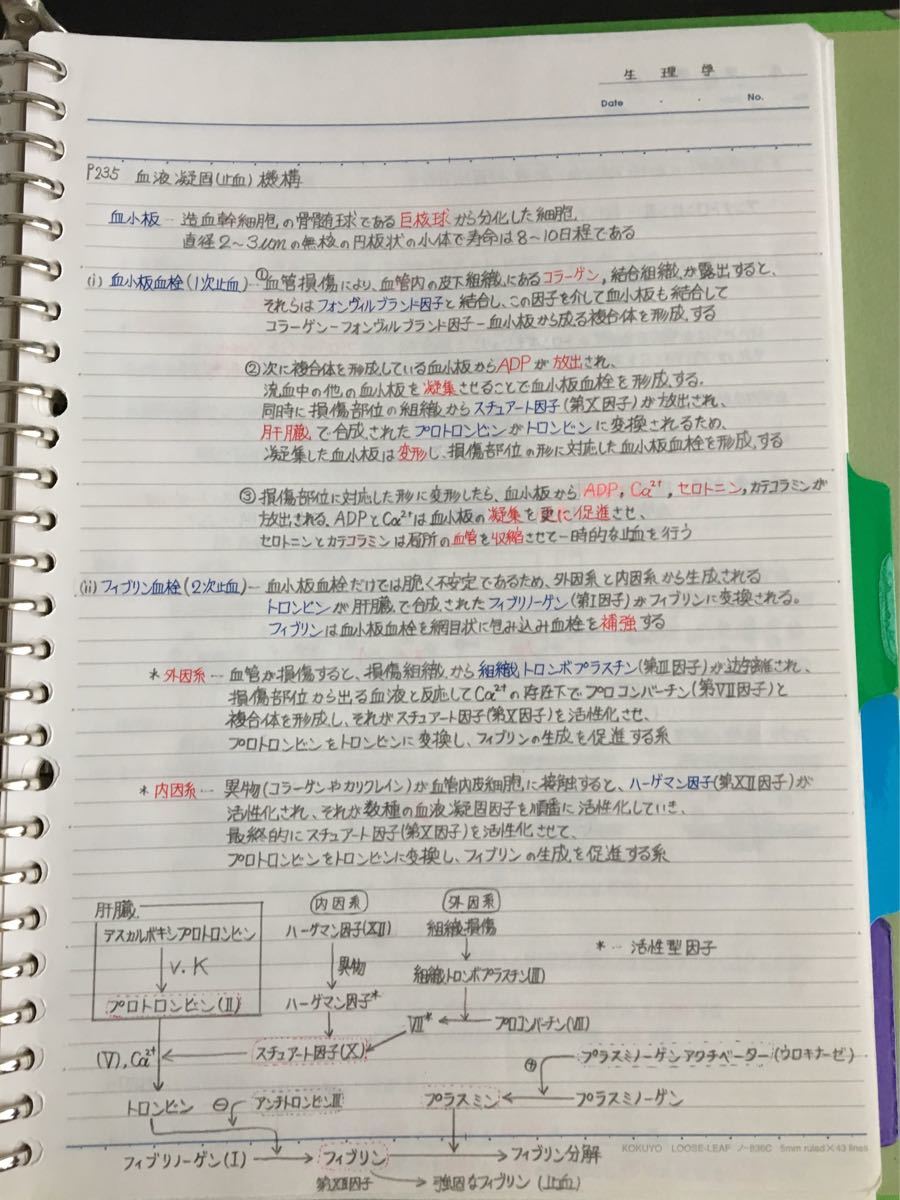 生理学
Date ・ ・ No.
P235 血液凝固(止血)機構
血小板… 造血幹細胞の骨髄球である巨核球から分化した細胞。
直径2〜3μmの無核の円板状の小体で寿命は8〜10日程である
(i) 血小板血栓(1次止血)…①血管損傷により、血管内の皮下組織にあるコラーゲン,結合組織が露出すると、
それらはフォンヴィルブランド因子と結合し、この因子を介して血小板も結合して
コラーゲン-フォンヴィルブランド因子-血小板から成る複合体を形成する
②次に複合体を形成している血小板からADPが放出され、
流血中の他の血小板を凝集させることで血小板血栓を形成する。
同時に損傷部位の組織からスチュアート因子(第X因子)が放出され、
肝臓で合成されたプロトロンビンがトロンビンに変換されるため、
凝集した血小板は変形し、損傷部位の形に対応した血小板血栓を形成する
③損傷部位に対応した形に変形したら、血小板からADP, Ca²⁺, セロトニン,カテコラミンが
放出される。ADPとCa²⁺は血小板の凝集を更に促進させ、
セロトニンとカテコラミンは局所の血管を収縮させて一時的な止血を行う
(ii) フィブリン血栓(2次止血)… 血小板血栓だけでは脆く不安定であるため、外因系と内因系から生成される
トロンビンが肝臓で合成されたフィブリノーゲン(第I因子)がフィブリンに変換される。
フィブリンは血小板血栓を網目状に包み込み血栓を補強する
* 外因系… 血管が損傷すると、損傷組織から組織トロンボプラスチン(第III因子)が遊離され、
損傷部位から出る血液と反応してCa²⁺の存在下でプロコンバーチン(第VII因子)と
複合体を形成し、それがスチュアート因子(第X因子)を活性化させ、
プロトロンビンをトロンビンに変換し、フィブリンの生成を促進する系
* 内因系… 異物(コラーゲンやカリクレイン)が血管内皮細胞に接触すると、ハーゲマン因子(第XII因子)が
活性化され、それが数種の血液凝固因子を順番に活性化していき、
最終的にスチュアート因子(第X因子)を活性化させて、
プロトロンビンをトロンビンに変換し、フィブリンの生成を促進する系
肝臓 内因系 外因系
デスカルボキシプロトロンビン ハーゲマン因子(XII) 組織損傷 *… 活性型因子
V.K 異物 組織トロンボプラスチン(III)
プロトロンビン(II) ハーゲマン因子* VII* プロコンバーチン(VII)
(V), Ca²⁺ スチュアート因子(X) ⊕ プラスミノーゲンアクチベーター(ウロキナーゼ)
トロンビン ⊖ アンチトロンビンIII プラスミン プラスミノーゲン
フィブリノーゲン(I) フィブリン フィブリン分解
第XIII因子 強固なフィブリン(止血)
KOKUYO LOOSE-LEAF ノ-836C 5mm ruled×43 lines